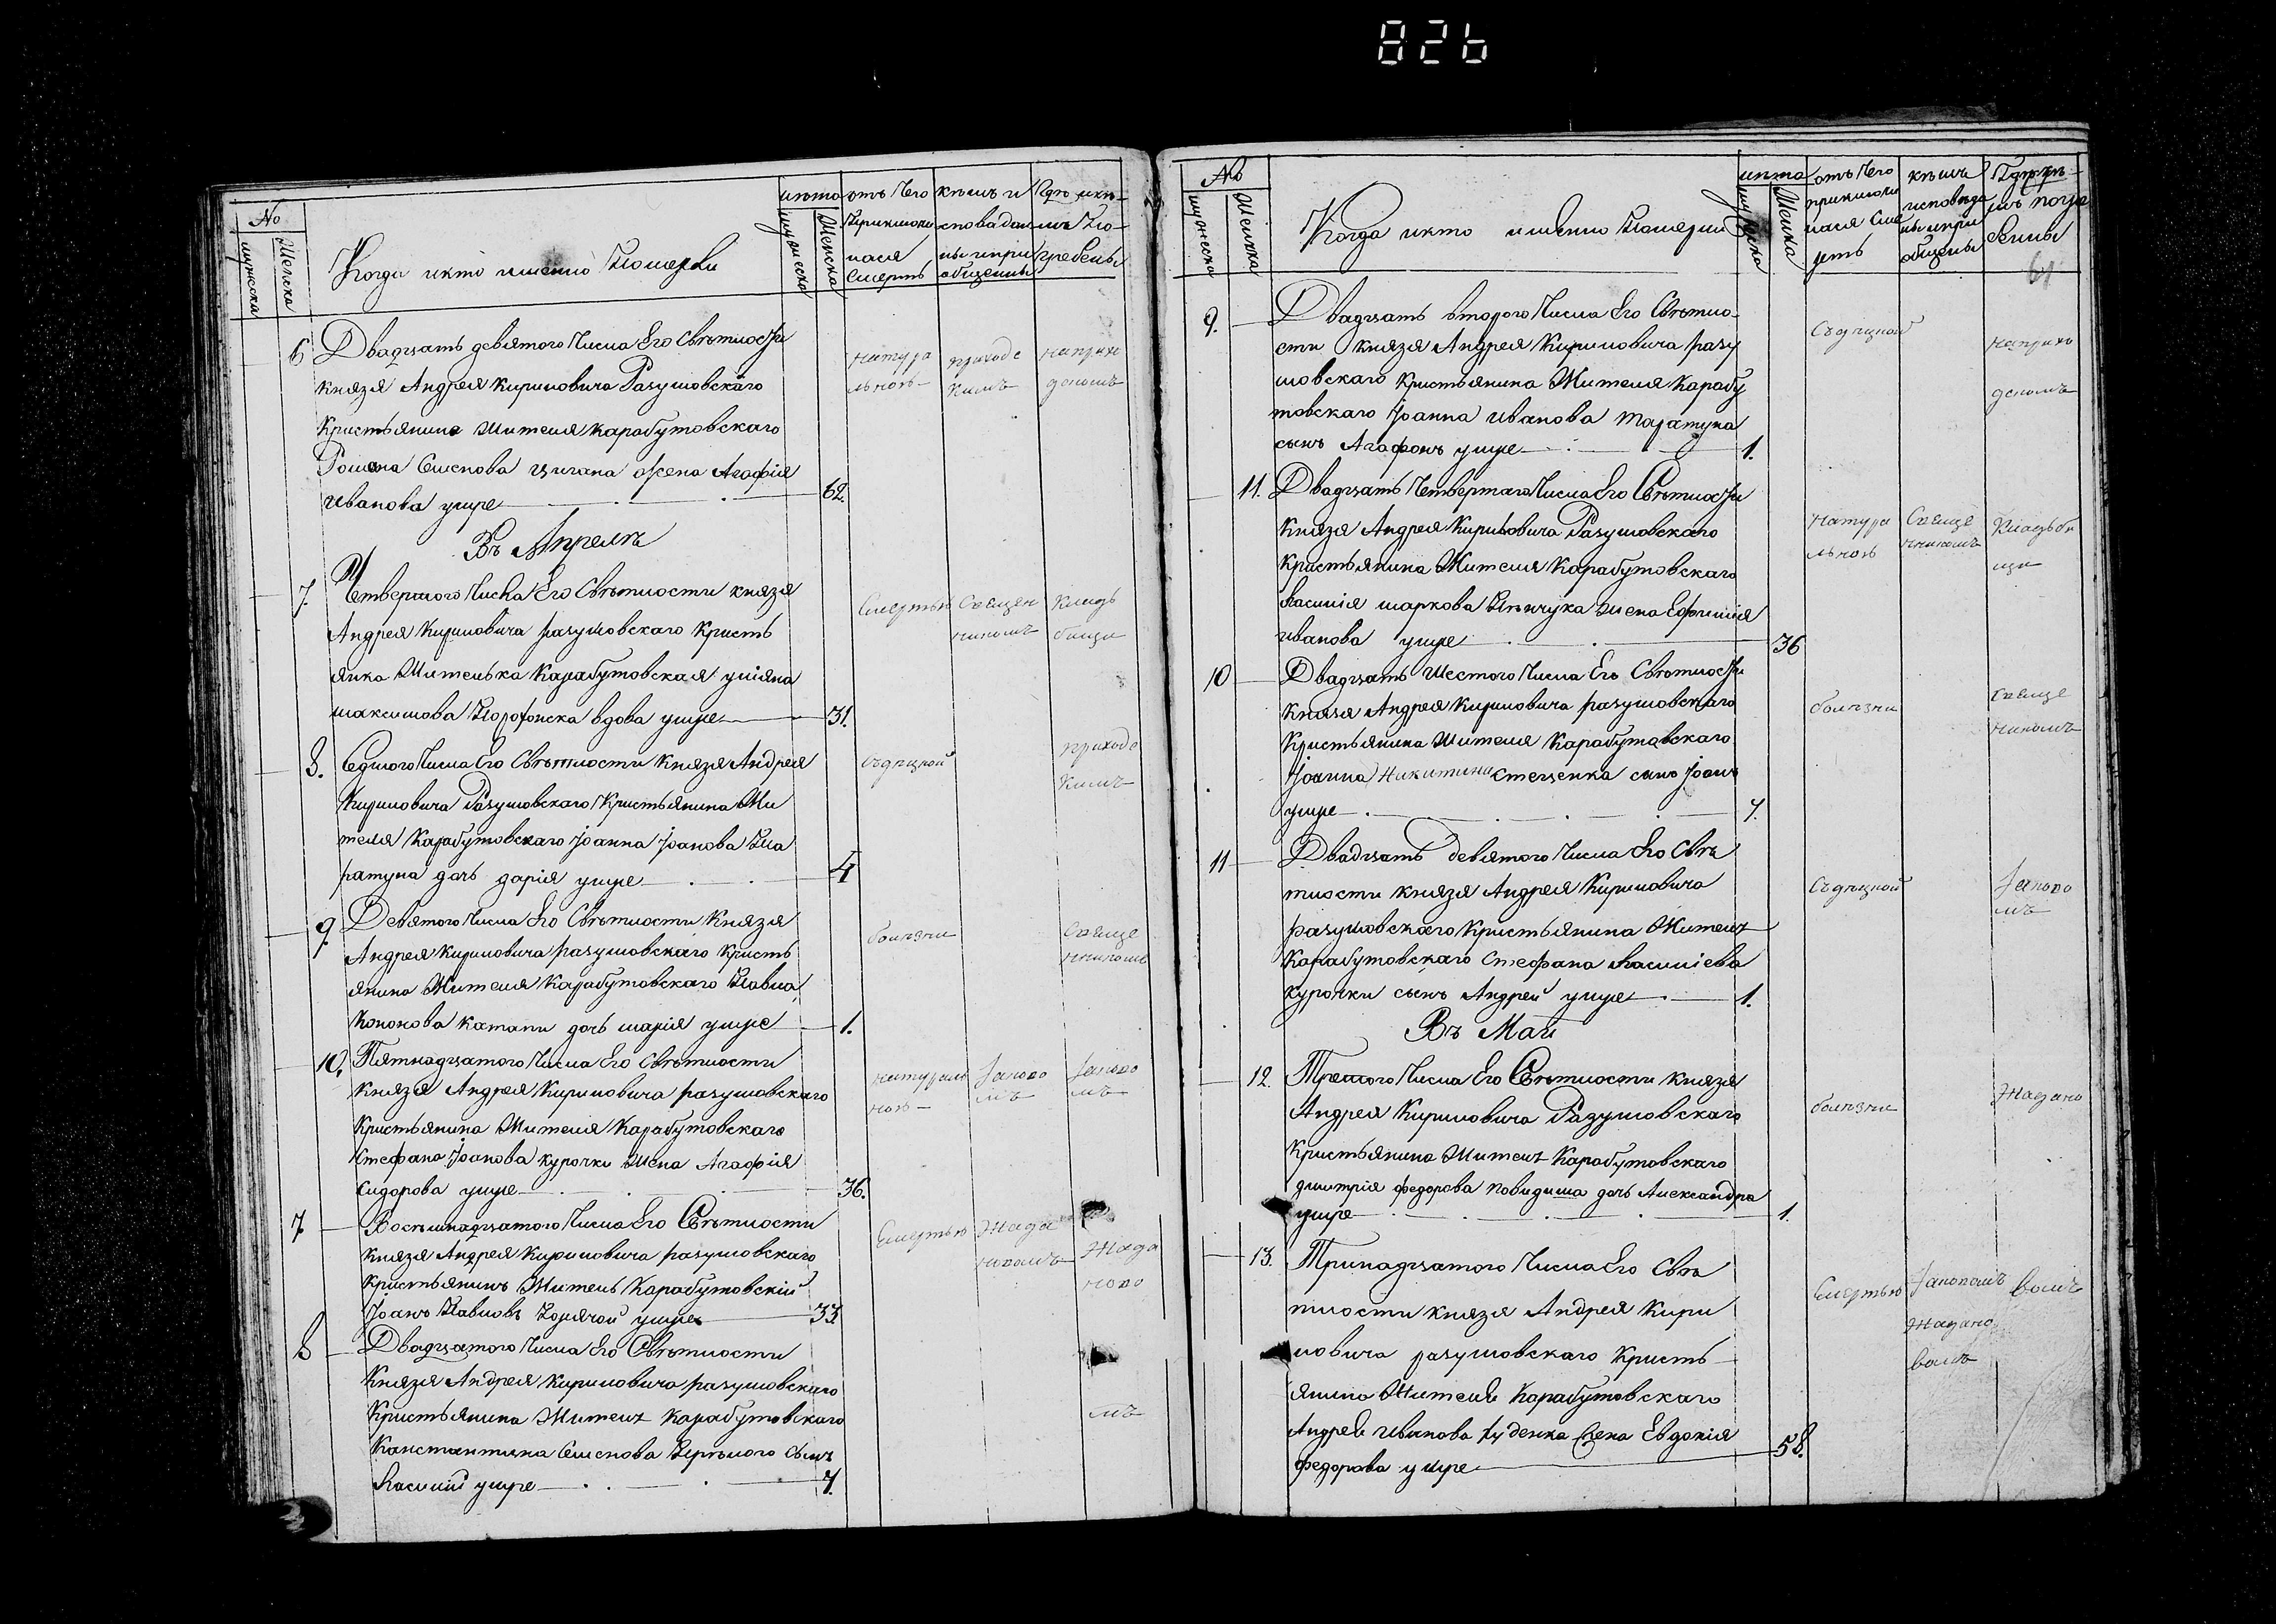 826
No
мужеска
Женска
Когда икто имено Померли
мужеска
Женска
отъ Чего
Приключи
лася
Смерть
кѣмъ и
сповѣдан
ны ипри
общенны
Гдѣ икѣ
мъ По
гребены
6 Двадцать девятого Числа Его Свѣтлости
князя Андрея Кириловича Разумовскаго
Кристьянина Жителя Карабутовскаго
Романа Семенова цигана жена Агафія
Иванова умре 62.
натура
льною
приходс
кимъ
наприхо
дскомъ
Въ Апрелѣ
7. Четвертого Числа Его Свѣтлости князя
Андрея Кириловича разумовскаго Кристь
янка Жителька Карабутовская уліяна
максимова вдова умре 31.
Смертью
Священ
никомъ
Кладъ
бищи
8. Седмого Числа Его Свѣтлости Князя Андрея
Кириловича Разумовскаго Кристьянина Жи
теля Карабутовскаго Іоанна Іоанова
ратуна дочь дарія умре 4
приходс
кимъ
9. Девятого Числа Его Свѣтлости Князя
Андрея Кириловича разумовскаго Кристь
янина Жителя Карабутовскаго Павла
Кононова дочь марія умре 1.
болѣзни
Свяще
нникомъ
10. Пятнадцатого Числа Его Свѣтлости
Князя Андрея Кириловича разумовскаго
Кристьянина Жителя Карабутовскаго
Стефана Іоанова курочки Жена Агафія
Сидорова умре 36.
натураль
ною
7 Восѣмнадцатого Числа Его Свѣтлости
Князя Андрея Кириловича разумовскаго
Кристьянинъ Житель Карабутовскій
Іоанъ Павловъ умре 33
Смертью
8 Двадцатого Числа Его Свѣтлости
Князя Андрея Кириловича разумовскаго
Кристьянина Жителя Карабутовскаго
Константина Семенова сынъ
Василий умре 7.
мъ
No
мужеска
Женска
Когда икто именно Померли
лѣта
мужеска
Женска
отъ Чего
приключи
лася Сме
рть
кѣмъ
исповѣда
ны ипри
общены
Гдѣ икѣ
мъ погре
бенны
61
9. Двадцать второго Числа Его Свѣтло
сти князя Андрея Кириловича разу
мовскаго Кристьянина Жителя Карабу
товскаго Іоанна Иванова таратуна
сынъ Агафонъ умре 1.
наприхо
дскомъ
11. Двадцать Четвертаго Числа Его Свѣтлости
Князя Андрея Кириловича Разумовскаго
Кристьянина Жителя Карабутовскаго
Василія маркова Жена Ефимія
Иванова умре 36
натура
льною
Свяще
нникомъ
Кладъби
щи
10 Двадцать Шестого Числа Его Свѣтлости
Князя Андрея Кириловича разумовскаго
Кристьянина Жителя Карабутовскаго
Іоанна Никитина стеценка сынъ Іоанъ
умре 7.
болѣзни
Свяще
никомъ
11 Двадцать девятого Числа Его Свѣ
тлости князя Андрея Кириловича
разумовскаго Кристьянина Жителя
Карабутовскаго Стефана Василіева
курочки сынъ Андрей умре 1.
Въ Маи
12. Третого Числа Его Свѣтлости князя
Андрея Кириловича Разумовскаго
Кристьянина Жителя Карабутовскаго
дмитрія федорова дочь Александра
умре 1.
болѣзни
13. Тринадцатого Числа Его Свѣ
тлости князя Андрея Кири
ловича разумовскаго Кристь
янина Жителя Карабутовскаго
Андрея Иванова Жена Евдокія
федорова умре 58.
Смертью